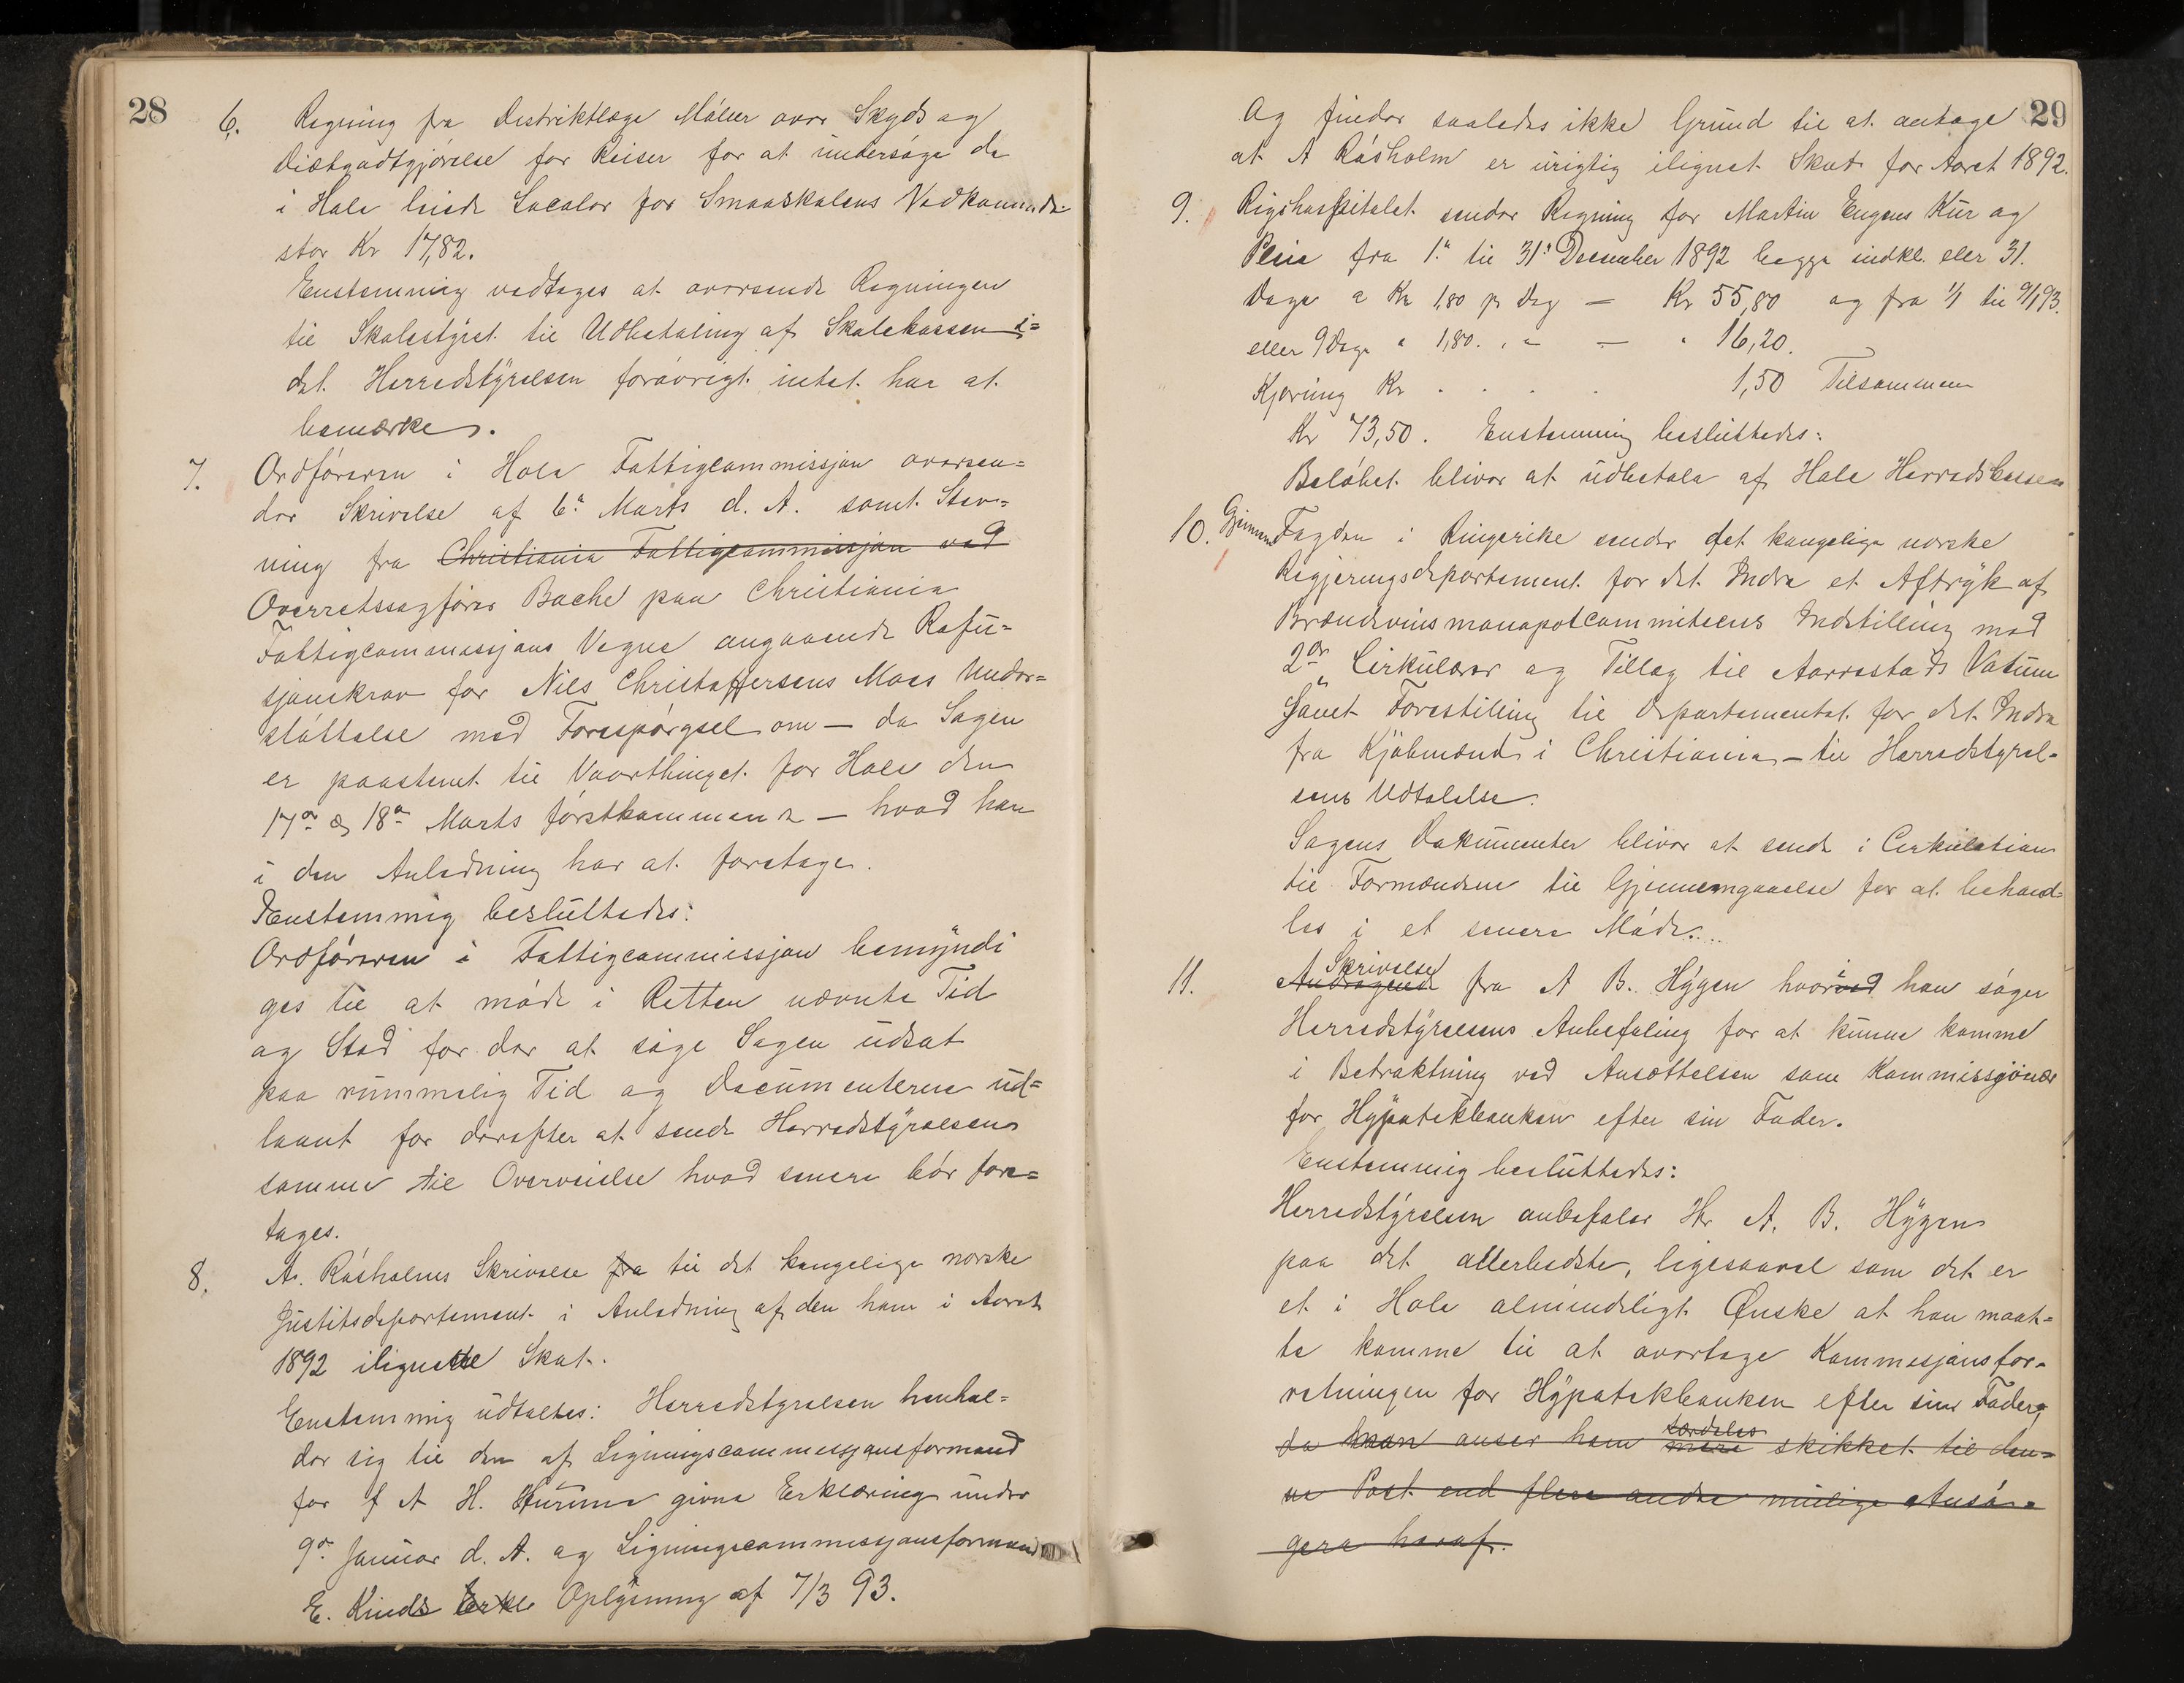 28
6. Regning fra Distriktlæge Møller over Skyds og
Diætgodtgjørelse for Reiser for at undersøge de
i Hole leiede Localer for Smaaskolens Vedkommende
stor Kr 17,82.
Enstemmig vedtages at oversende Regningen
til Skolestyret til Udbetaling af Skolekassen i=
det Herredstyrelsen forøvrigt intet har at
bemærke.
7. Ordføreren i Hole Fattigcommissjon oversen=
der Skrivelse af 6te Marts d. A. samt Stev=
ning fra Christiania Fattigcommissjon ved
Overretssagfører Bache paa Christiania
Fattigcommissjons Vegne angaaende Refu=
sjonskrav for Nils Christoffersens Moes Under=
støttelse med Forespørgsel om — da Sagen
er paastevnt til Vaarthinget for Hole den
17de og 18de Marts førstkommende — hvad han
i den Anledning har at foretage.
Enstemmig besluttedes:
Ordføreren i Fattigcommissjon bemyndi
ges til at møde i Retten nævnte Tid
og Sted for der at søge Sagen udsat
paa rummelig Tid og Documenterne ud=
laant for derefter at sende Herredstyrelsen
samme til Overveielse hvad senere bør fore=
tages.
8. A. Røsholms Skrivelse fra til det kongelige norske
Justitsdepartement i Anledning af den ham i Aaret
1892 ilignede Skat.
Enstemmig udtaltes: Herredstyrelsen henhol=
der sig til den af Ligningscommissjonsformand
for f A H. Hurum givne Erklæring under
9de Januar d. A. og Ligningscommissjonsformand
E. Kinds Erkl Oplysning af 7/3 93.
29
Og finder saaledes ikke Grund til at antage
at A Røsholm er urigtig ilignet Skat for Aaret 1892.
9. Rigshospitalet sender Regning for Martin Engens Kur og
Pleie fra 1te til 31te December 1892 begge indkl. eller 31.
Dage a Kr 1,80 pr Dag — Kr 55,80 og fra 1/1 til 9/1 93.
eller 9 Dage a 1,80. " — " 16,20.
Kjøring Kr . . . . 1,50 Tilsammen
Kr 73,50. Enstemmig besluttedes:
Beløbet bliver at udbetale af Hole Herredskasse
10. Gjennem Fogden i Ringerike sender det kongelige norske
Regjeringsdepartement for det Indre et Aftryk af
Brændevinsmonopolcommiteens Indstilling med
2de Cirkulærer og Tillæg til Aarrestads Votum
samt Forestilling til Departementet for det Indre
fra Kjøbmænd i Christiania — til Herredstyrel=
sens Udtalelse.
Sagens Dokumenter bliver at sende i Cirkulation
til Formændene til Gjennemgaaelse for at behand=
les i et senere Møde.
11. Andragende Skrivelse fra A B. Hygen hvorved i han søger
Herredstyrelsens Anbefaling for at kunne komme
i Betraktning ved Ansættelsen som Kommissjonær
for Hypotekbanken efter sin Fader.
Enstemmig besluttedes:
Herredstyrelsen anbefaler Hr A. B. Hygen
paa det allerbedste, ligesaavel som det er
et i Hole almindeligt Ønske at han maat=
te komme til at overtage Kommissjonsfor=
retningen for Hypotekbanken efter sin Fader,
da man anser ham mere særdeles skikket til den=
ne Post end flere andre mulige Ansø=
gere heraf.